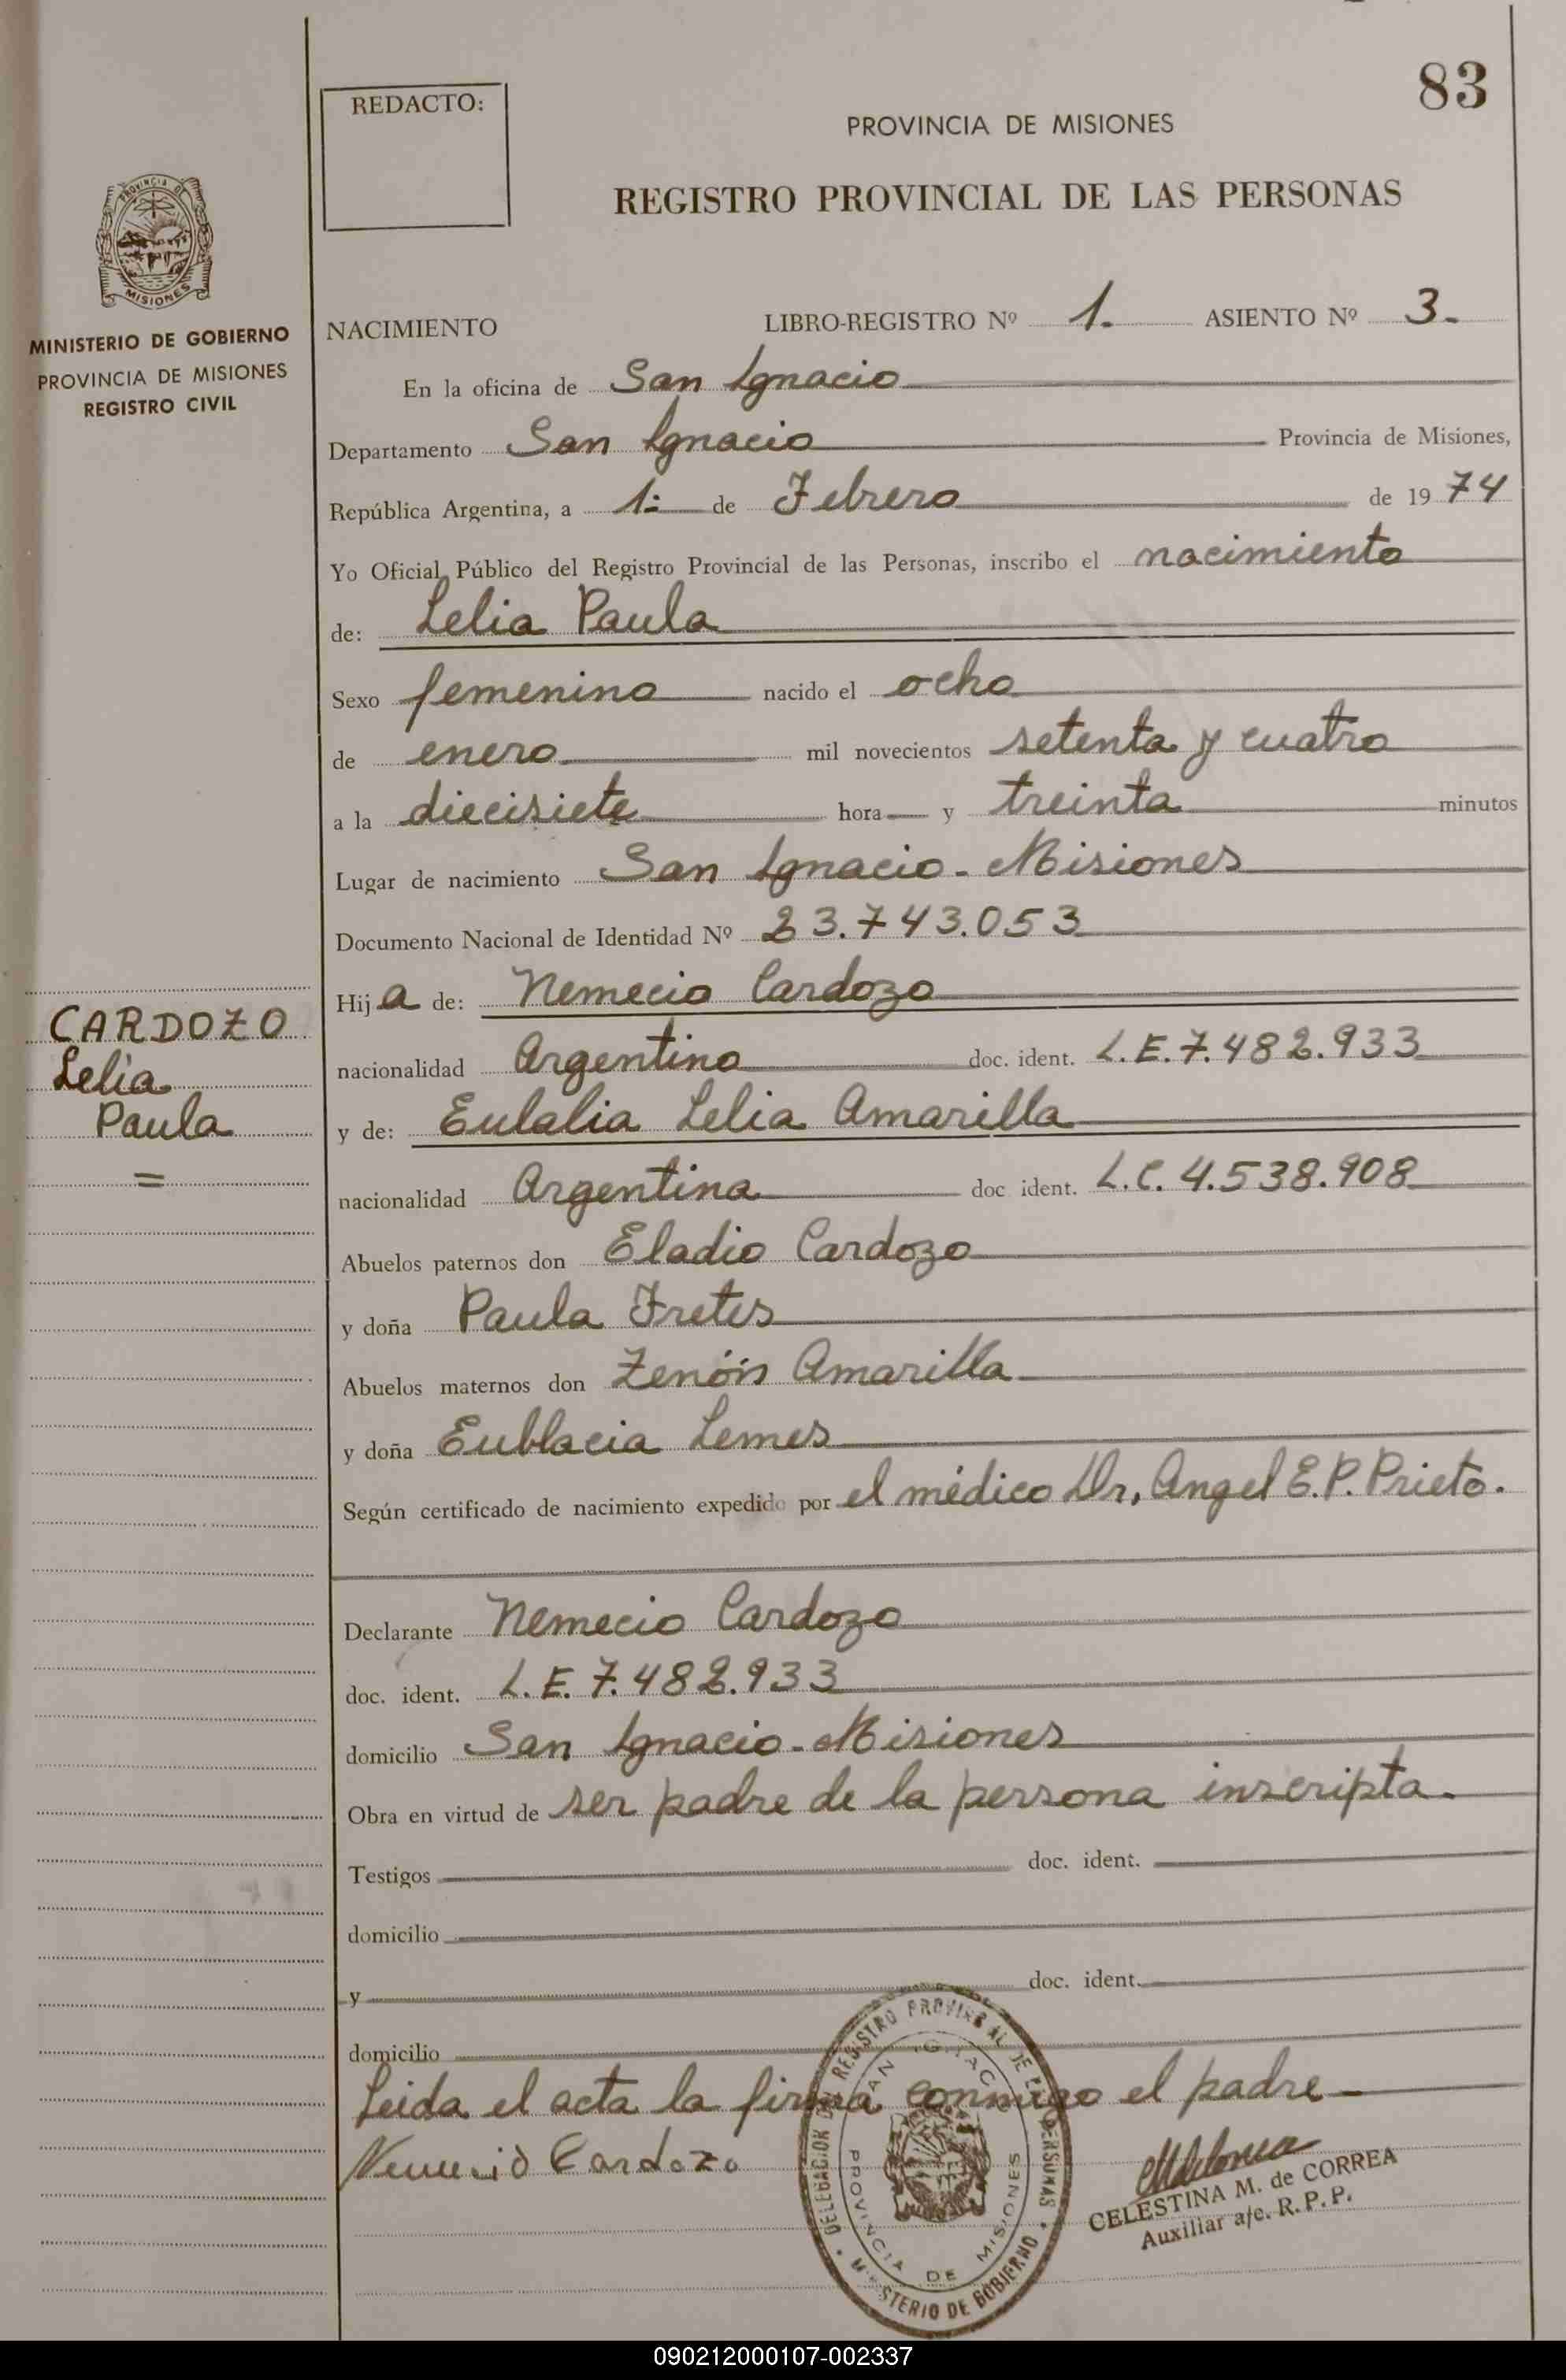 83
REDACTO:
PROVINCIA DE MISIONES
REGISTRO PROVINCIAL DE LAS PERSONAS
PROVINCIA DE
MISIONES
MINISTERIO DE GOBIERNO
PROVINCIA DE MISIONES
REGISTRO CIVIL
NACIMIENTO LIBRO-REGISTRO Nº 1. ASIENTO Nº 3.
En la oficina de San Ignacio
Departamento San Ignacio Provincia de Misiones,
República Argentina, a 1º de Febrero de 1974
Yo Oficial Público del Registro Provincial de las Personas, inscribo el nacimiento
de: Lelia Paula
Sexo femenino nacido el ocho
de enero mil novecientos setenta y cuatro
a la diecisiete hora y treinta minutos
Lugar de nacimiento San Ignacio - Misiones
Documento Nacional de Identidad Nº 23.743.053
Hija de: Nemecio Cardozo
CARDOZO
Lelia
Paula
=
nacionalidad Argentino doc. ident. L.E. 7.482.933
y de: Eulalia Lelia Amarilla
nacionalidad Argentina doc ident. L.C. 4.538.908
Abuelos paternos don Eladio Cardozo
y doña Paula Fretes
Abuelos maternos don Zenón Amarilla
y doña Eublacia Lemes
Según certificado de nacimiento expedido por el médico Dr, Angel E.P. Prieto.
Declarante Nemecio Cardozo
doc. ident. L.E. 7.482.933
domicilio San Ignacio - Misiones
Obra en virtud de ser padre de la persona inscripta.
Testigos doc. ident.
domicilio
y doc. ident.
domicilio
Leida el acta la firma conmigo el padre
Nemecio Cardozo
DELEGACION DEL REGISTRO PROVINCIAL DE LAS PERSONAS
SAN IGNACIO
PROVINCIA DE MISIONES
MINISTERIO DE GOBIERNO
CELESTINA M. de CORREA
Auxiliar a/c. R.P.P.
090212000107-002337